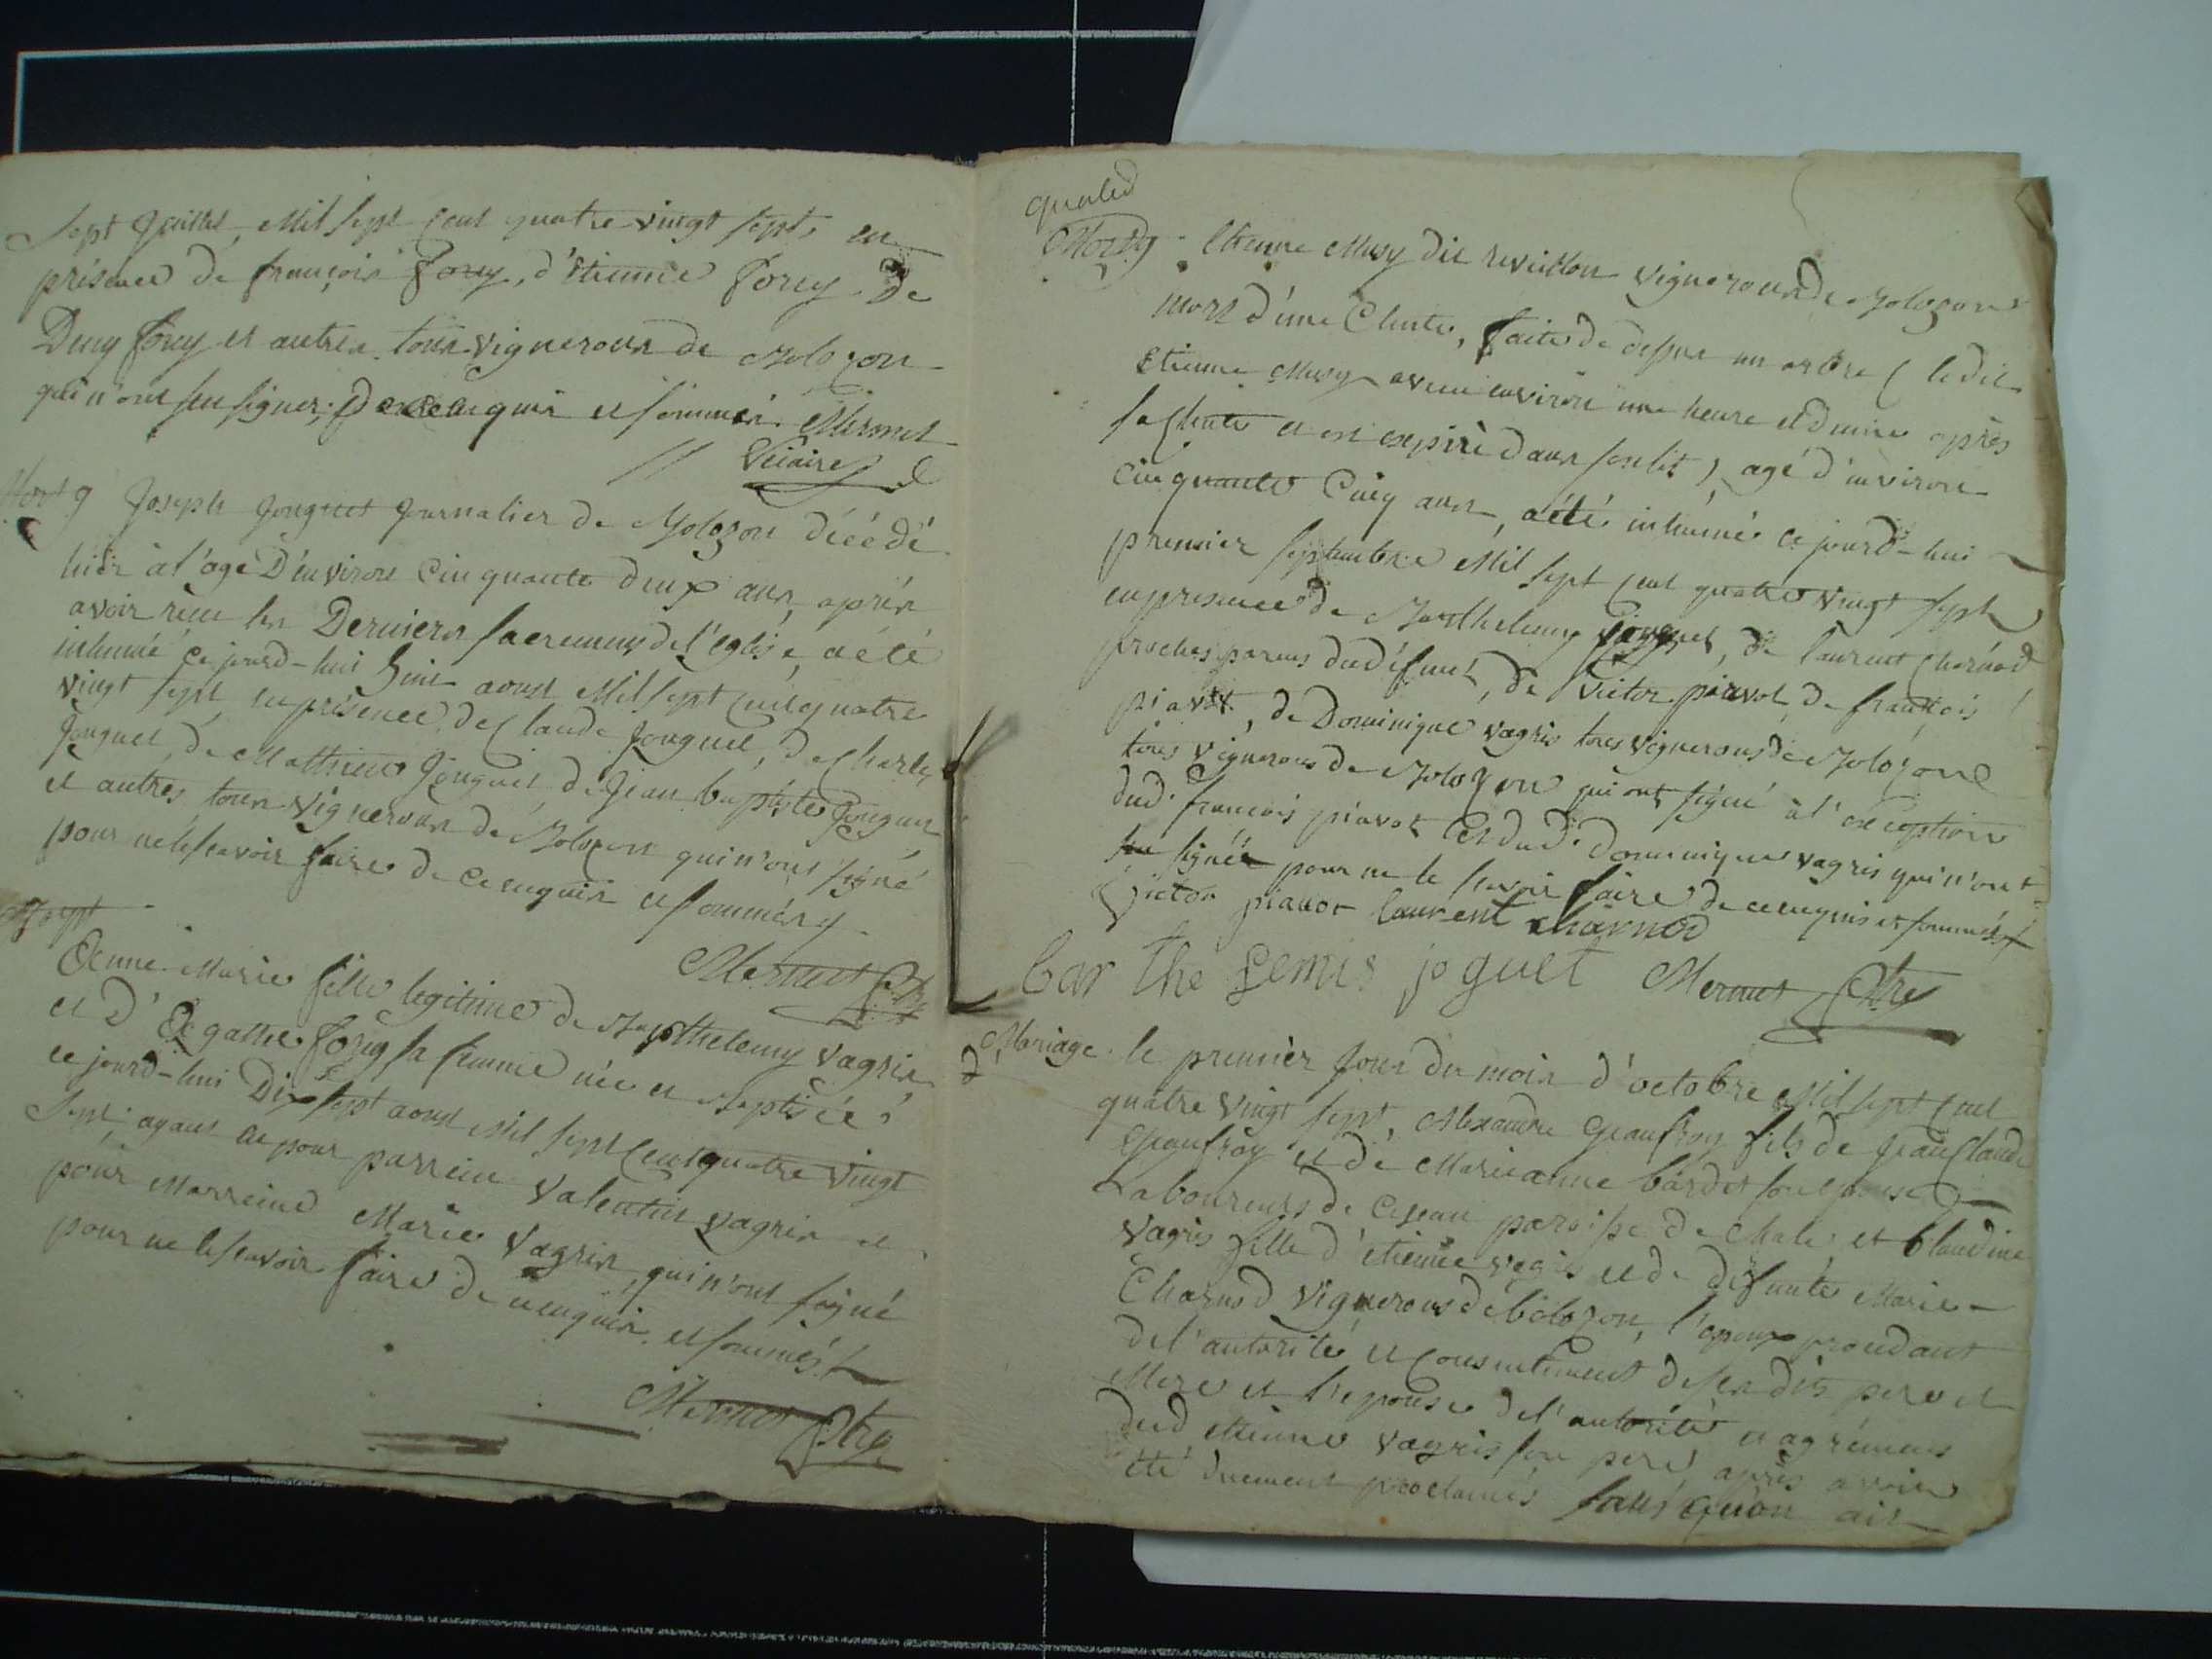 Sept Juillet Mil Sept Cent quatre vingt sept, en
présence de françois forey, d'Etienne forey De
Deny forey et autres tous vignerons de Bolozon
qui n'ont sçu signer, De ce enquis et sommés. Mermet
Vicaire
Mort 9 Joseph Jouguet Journalier de Bolozon décédé
hier à l'age D'environ Cinquante deux ans, après
avoir reçu les Derniers sacremens de l'église, a été
inhumé ce jourd-hui huit aoust Mil sept cent quatre
vingt sept, en présence de Claude Jouguet, de Charles
Jouguet, de Mathieu Jouguet de Jean baptiste Jouguet
et autres, tous vignerons de Bolozon qui n'ont signé
pour ne le scavoir faire de ce enquis et sommés
Mermet Ptre
Bapt
Jeanne Marie fille legitime de Barthelemy vagris
et d'Agathe forey sa femme née et Baptisée
ce jourd-hui Dix sept aoust Mil sept Cent quatre vingt
Sept, ayant eu pour parrein Valentin vagris et
pour Marreine Marie Vagris, qui n'ont signé
pour ne le scavoir faire de ce enquis et sommés
Mermet Ptre
Mort 9 Etienne Musy dit reveillon vigneron de Bolozon
mort d'une Chute, faite de dessus un arbre ( le dit
Etienne Musy a vecu environ une heure et demie après
sa Chute et est expiré dans son lit ) agé d'environ
Cinquante Cinq ans, a été inhumé ce jourd-hui
premier septembre Mil sept cent quatre vingt sept
en presence de Barthelemy Jouguet, de laurent Charnod
proches parens dud défunt, de Victor piavot, de françois
piavot, de Dominique vagris tous vignerons de Bolozon
tous vignerons de Bolozon qui ont signé à l'exception
dud. françois piavot Et dud. Dominique vagris qui n'ont
signé pour ne le scavoir faire de ce enquis et sommés
Victor piauot laurent charnod
bar the lemis joguet Mermet Ptre
Mariage le premier Jour du mois d'octobre Mil sept cent
quatre vingt sept, Alexandre Geaufroy fils de Jean Claude
Geaufroy et de Marie anne bardet son épouse
Laboureurs de paroisse de et Claudine
Vagris fille d'etienne vagris et de défunte Marie
Charnod vignerons de bolozon, l'epoux procédant
de l'autorité et consentement de ses dits pere et
Mere et l'epouse de l'autorité et agrément
dud etienne vagris son pere, après avoir
été duement proclamés sans qu'on ait